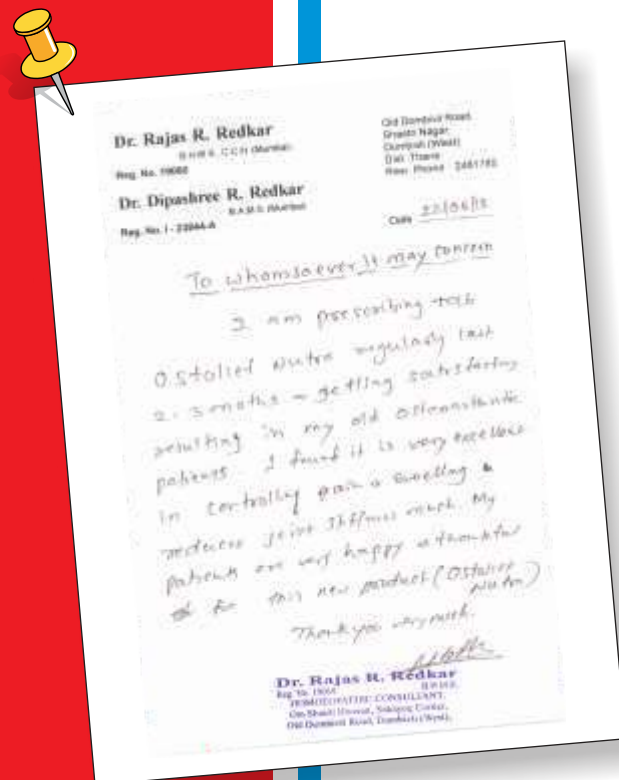 Dr. Rajas R. Redkar
B.H.M.S. C.C.H. (Mumbai)
Reg. No. 19068
Dr. Dipashree R. Redkar
B.A.M.S. (Mumbai)
Reg. No. I - 23844-A
Old Dombivli Road,
Nagar,
Dombivli (West)
Dist. Thane
Phone 2481782
Date 22/06/15
To whomsoever It may concern
I am prescribing tab
Ostolief Nutra regularly last
2-3 months - getting satisfactory
resulting in my old osteoarthritic
patients I found it is very excellent
in controlling pain & swelling &
reduces joint stiffness much. My
patients are very happy & thankful
for this new product (Ostolief
Nutra)
Thank you very much.
Dr. Rajas R. Redkar
Reg. No. 19068 B.H.M.S.
HOMOEOPATHIC CONSULTANT,
Om Shakti Corner,
Old Dombivli Road, Dombivli (West),